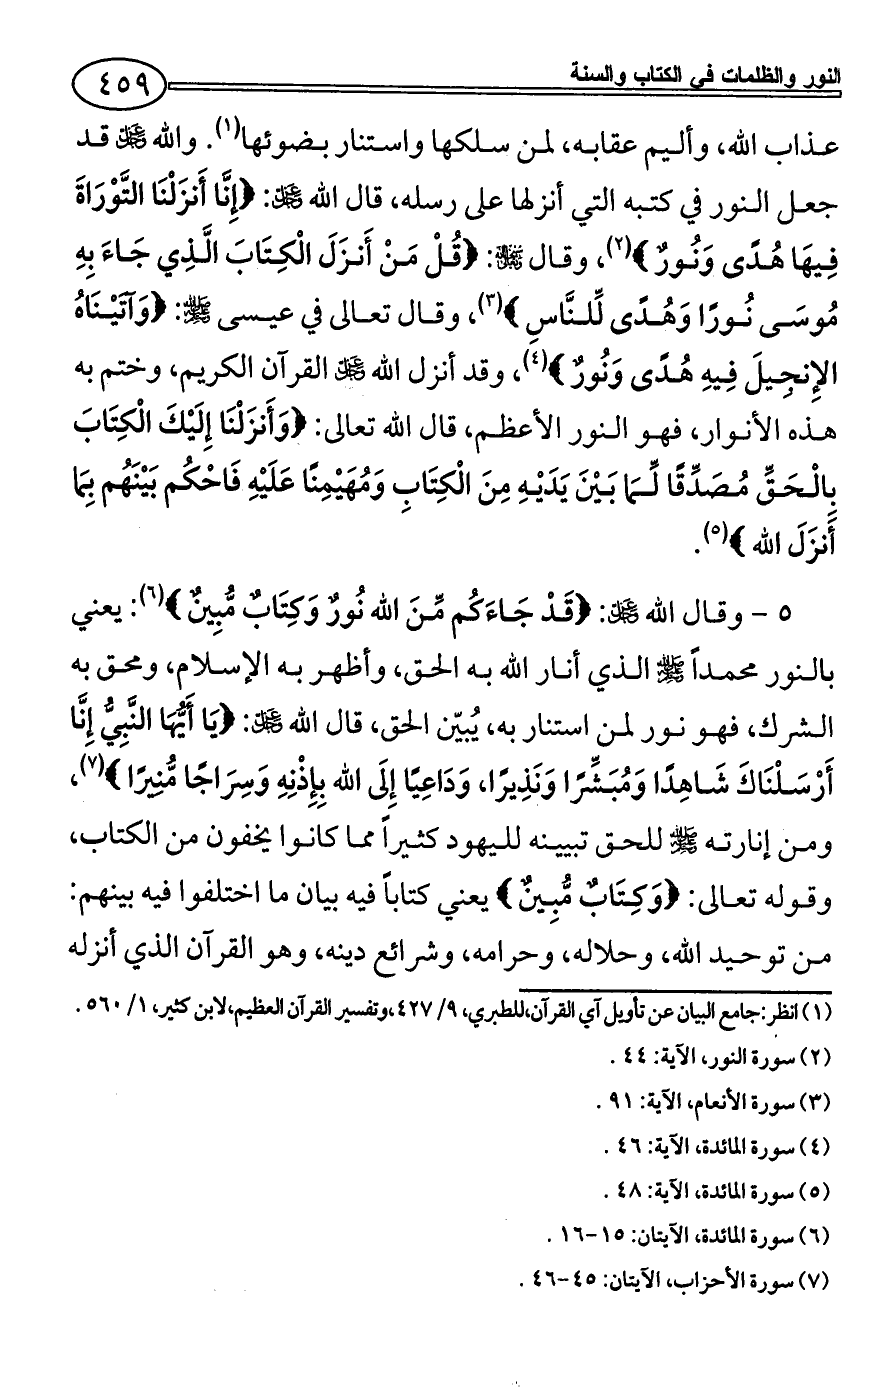 النور والظلمات في الكتاب والسنة
٤٥٩
عذاب الله، وأليم عقابه، لمن سلكها واستنار بضوئها(١). والله ﷻ قد
جعل النور في كتبه التي أنزلها على رسله، قال الله ﷻ: ﴿إِنَّا أَنزَلْنَا التَّوْرَاةَ
فِيهَا هُدًى وَنُورٌ﴾(٢)، وقال ﷻ: ﴿قُلْ مَنْ أَنزَلَ الْكِتَابَ الَّذِي جَاءَ بِهِ
مُوسَى نُورًا وَهُدًى لِّلنَّاسِ﴾(٣)، وقال تعالى في عيسى ﷺ: ﴿وَآتَيْنَاهُ
الإِنجِيلَ فِيهِ هُدًى وَنُورٌ﴾(٤)، وقد أنزل الله ﷻ القرآن الكريم، وختم به
هذه الأنوار، فهو النور الأعظم، قال الله تعالى: ﴿وَأَنزَلْنَا إِلَيْكَ الْكِتَابَ
بِالْحَقِّ مُصَدِّقًا لِّمَا بَيْنَ يَدَيْهِ مِنَ الْكِتَابِ وَمُهَيْمِنًا عَلَيْهِ فَاحْكُم بَيْنَهُم بِمَا
أَنزَلَ الله﴾(٥).
٥ – وقال الله ﷻ: ﴿قَدْ جَاءَكُم مِّنَ الله نُورٌ وَكِتَابٌ مُّبِينٌ﴾(٦): يعني
بالنور محمداً ﷺ الذي أنار الله به الحق، وأظهر به الإسلام، ومحق به
الشرك، فهو نور لمن استنار به، يُبيّن الحق، قال الله ﷻ: ﴿يَا أَيُّهَا النَّبِيُّ إِنَّا
أَرْسَلْنَاكَ شَاهِدًا وَمُبَشِّرًا وَنَذِيرًا، وَدَاعِيًا إِلَى الله بِإِذْنِهِ وَسِرَاجًا مُّنِيرًا﴾(٧)،
ومن إنارته ﷺ للحق تبيينه لليهود كثيراً مما كانوا يخفون من الكتاب،
وقوله تعالى: ﴿وَكِتَابٌ مُّبِينٌ﴾ يعني كتاباً فيه بيان ما اختلفوا فيه بينهم:
من توحيد الله، وحلاله، وحرامه، وشرائع دينه، وهو القرآن الذي أنزله
(١) انظر: جامع البيان عن تأويل آي القرآن، للطبري، ٩/ ٤٢٧، وتفسير القرآن العظيم، لابن كثير، ١/ ٥٦٠.
(٢) سورة النور، الآية: ٤٤.
(٣) سورة الأنعام، الآية: ٩١.
(٤) سورة المائدة، الآية: ٤٦.
(٥) سورة المائدة، الآية: ٤٨.
(٦) سورة المائدة، الآيتان: ١٥-١٦.
(٧) سورة الأحزاب، الآيتان: ٤٥-٤٦.